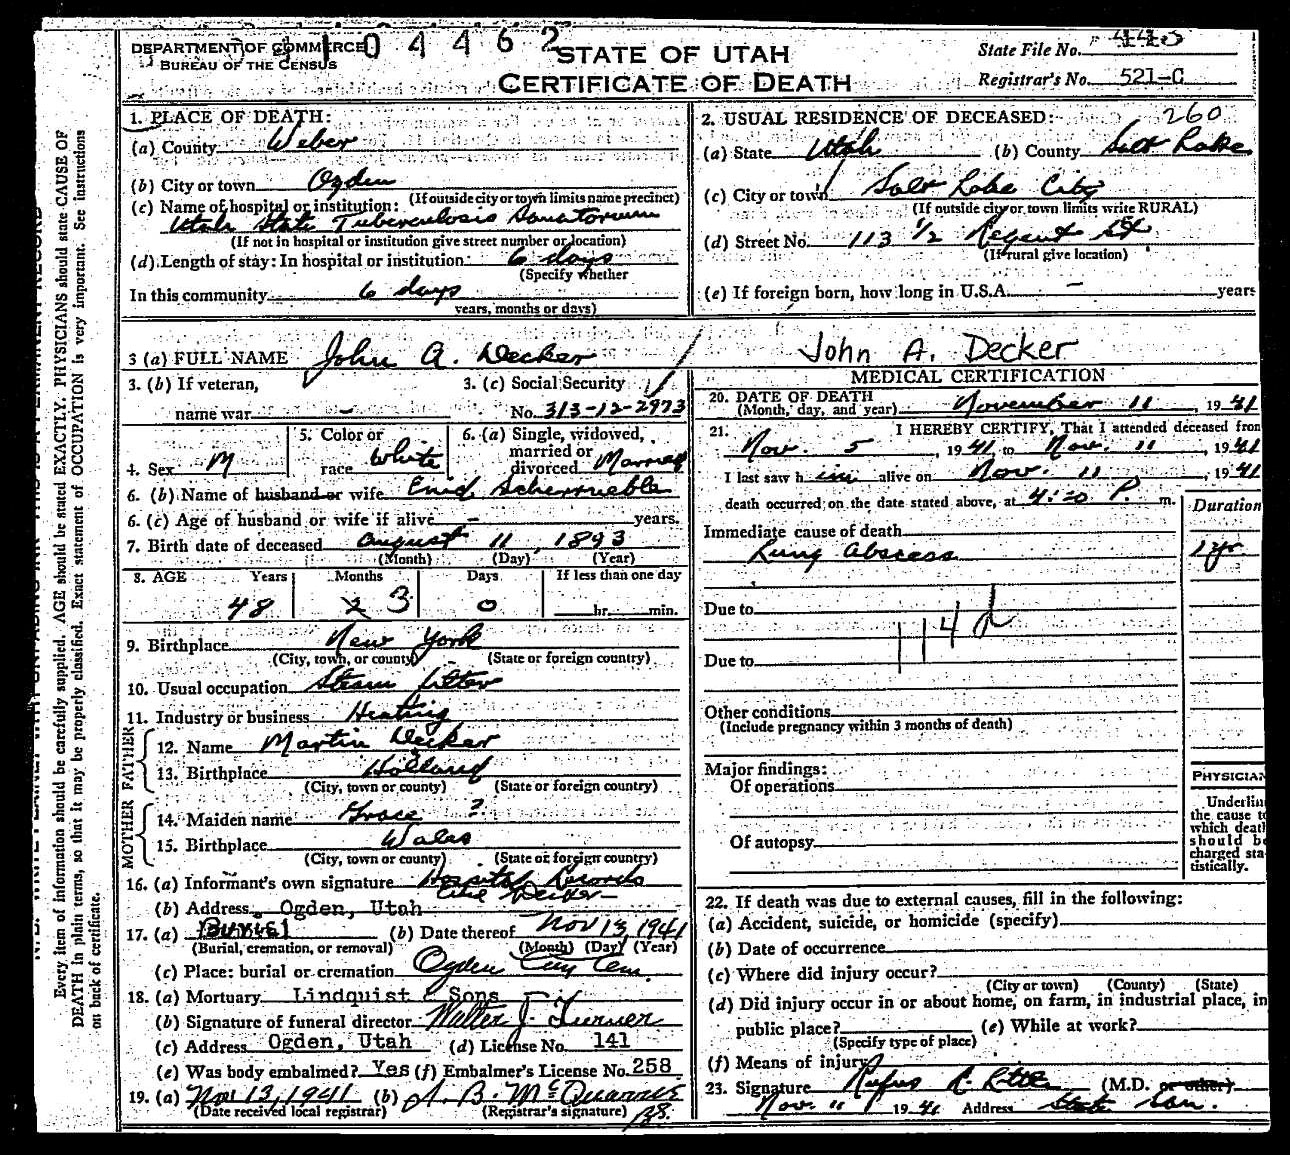 DEPARTMENT OF COMMERCE
BUREAU OF THE CENSUS
104462
STATE OF UTAH
CERTIFICATE OF DEATH
State File No.
Registrar's No. 521-C
1. PLACE OF DEATH:
(a) County Weber
(b) City or town Ogden
(If outside city or town limits name precinct)
(c) Name of hospital or institution:
Utah State Tuberculosis Sanatorium
(If not in hospital or institution give street number or location)
(d) Length of stay: In hospital or institution 6 days
(Specify whether
In this community 6 days
years, months or days)
2. USUAL RESIDENCE OF DECEASED: 260
(a) State Utah (b) County Salt Lake
(c) City or town Salt Lake City
(If outside city or town limits write RURAL)
(d) Street No. 113 1/2 Regent St
(If rural give location)
(e) If foreign born, how long in U.S.A. - years
3 (a) FULL NAME John A. Decker
John A. Decker
3. (b) If veteran,
name war -
3. (c) Social Security
No. 313-12-2973
4. Sex M
5. Color or
race White
6. (a) Single, widowed,
married or
divorced Married
6. (b) Name of husband or wife Enid
6. (c) Age of husband or wife if alive - years.
7. Birth date of deceased August 11, 1893
(Month) (Day) (Year)
8. AGE Years Months Days If less than one day
48 2 3 0 hr. min.
9. Birthplace New York
(City, town, or county) (State or foreign country)
10. Usual occupation Steam fitter
11. Industry or business Heating
FATHER
12. Name Martin Decker
13. Birthplace Holland
(City, town or county) (State or foreign country)
MOTHER
14. Maiden name Grace ?
15. Birthplace Wales
(City, town or county) (State or foreign country)
16. (a) Informant's own signature Hospital Records
Decker
(b) Address Ogden, Utah
17. (a) Burial (b) Date thereof Nov 13, 1941
(Burial, cremation, or removal) (Month) (Day) (Year)
(c) Place: burial or cremation Ogden City Cem.
18. (a) Mortuary Lindquist & Sons
(b) Signature of funeral director Walter J. Turner
(c) Address Ogden, Utah (d) License No. 141
(e) Was body embalmed? Yes (f) Embalmer's License No. 258
19. (a) Nov 13, 1941 (b) A. B. McQuarrie
(Date received local registrar) (Registrar's signature)
MEDICAL CERTIFICATION
20. DATE OF DEATH
(Month, day, and year) November 11, 1941
21. I HEREBY CERTIFY, That I attended deceased from
Nov. 5, 1941 to Nov. 11, 1941
I last saw him alive on Nov. 11, 1941
death occurred on the date stated above, at 4:20 P. m.
Duration
Immediate cause of death
Lung Abscess 1 yr
Due to
114 d
Due to
Other conditions
(Include pregnancy within 3 months of death)
Major findings:
Of operations
Of autopsy
PHYSICIAN
Underline
the cause to
which death
should be
charged sta-
tistically.
22. If death was due to external causes, fill in the following:
(a) Accident, suicide, or homicide (specify)
(b) Date of occurrence
(c) Where did injury occur?
(City or town) (County) (State)
(d) Did injury occur in or about home, on farm, in industrial place, in
public place? (e) While at work?
(Specify type of place)
(f) Means of injury
23. Signature Rufus (M.D. or other)
Nov. 11 1941 Address State San.
Every item of information should be carefully supplied. AGE should be stated EXACTLY. PHYSICIANS should state CAUSE OF
DEATH in plain terms, so that it may be properly classified. Exact statement of OCCUPATION is very important. See instructions
on back of certificate.